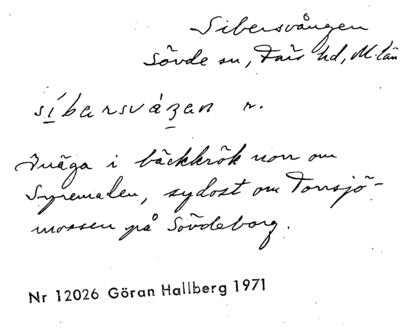 Sibersvången
Sövde sn, Färs hd, M. län
síbarsváŋan n.
Inäga i bäckkrök norr om
Syremalen, sydost om Torrsjö-
mossen på Sövdeborg.
Nr 12026 Göran Hallberg 1971